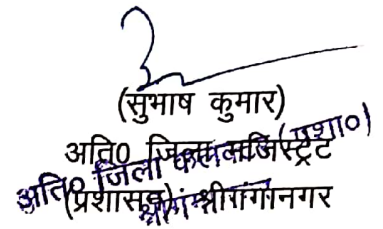 (सुभाष कुमार)
अति० जिला मजिस्ट्रेट
(प्रशासन) श्रीगंगानगर
अति० जिला कलक्टर (प्रशा०)
श्रीगंगानगर